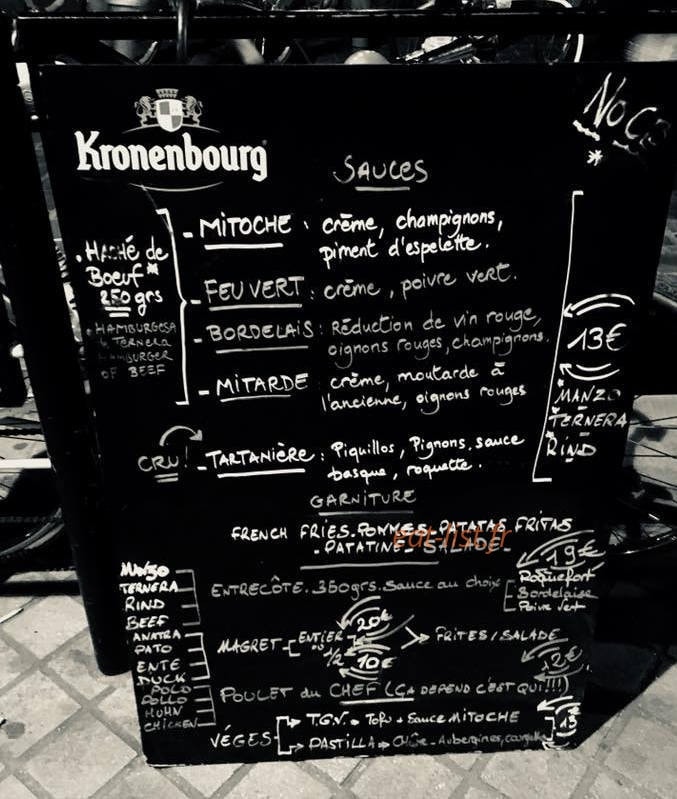 Kronenbourg
SAUCES
.HACHÉ de
Boeuf*
250 grs
HAMBURGESA
TERNERA
HAMBURGER
OF BEEF
- MITOCHE : crème, champignons,
piment d'espelette.
- FEU VERT : crème, poivre vert.
- BORDELAIS : Réduction de vin rouge,
oignons rouges, champignons.
- MITARDE : crème, moutarde à
l'ancienne, oignons rouges
CRU! - TARTANIÈRE : Piquillos, Pignons, sauce
basque, roquette.
13€
*MANZO
*TERNERA
*RIND
GARNITURE
FRENCH FRIES-POMMES-PATATAS FRITAS
- PATATINE - SALADE-
MANZO
TERNERA
RIND
BEEF
ENTRECÔTE. 350grs. Sauce au choix
19€
Roquefort
Bordelaise
Poivre vert
ANATRA
PATO
ENTE
DUCK
MAGRET - ENTIER 20€
ou 1/2 10€
FRITES/SALADE
POLO
POLLO
HUHN
CHICKEN
POULET du CHEF (ÇA DEPEND C'EST QUI!!!)
12€
VÉGES
T.G.V. Tofu + Sauce MITOCHE
PASTILLA Chèvre-Aubergines, courgette
13